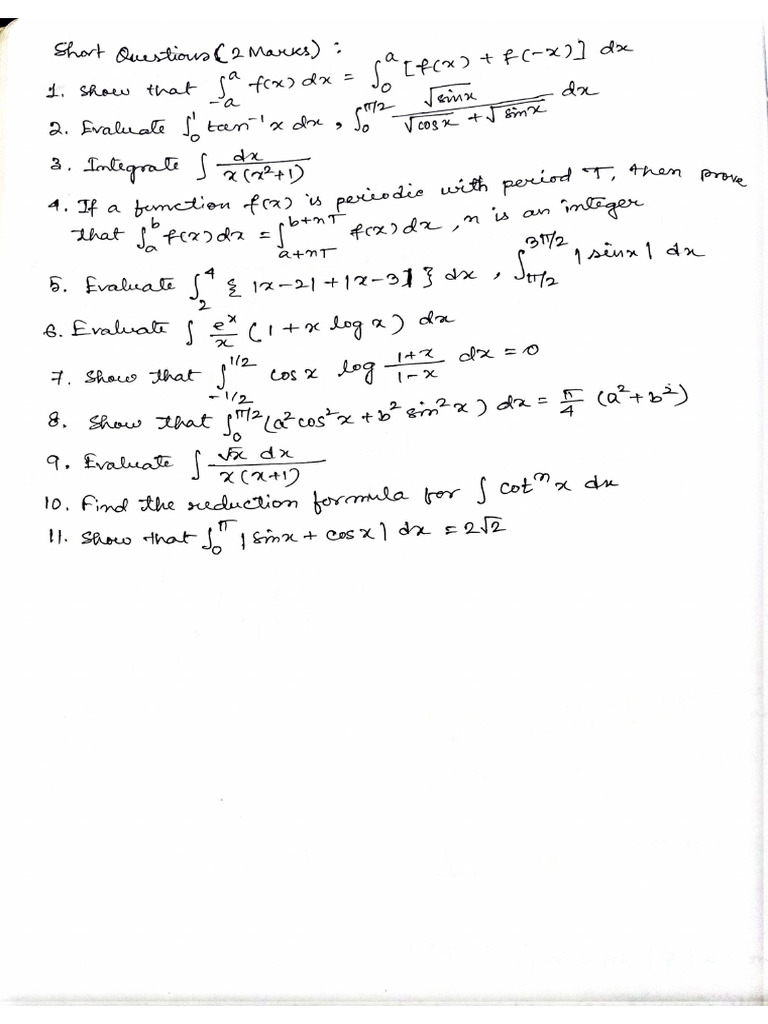 Short Questions (2 Marks) :
1. Show that ∫_{-a}^{a} f(x) dx = ∫_0^a [f(x) + f(-x)] dx
2. Evaluate ∫_0^1 tan^{-1} x dx, ∫_0^{π/2} √sinx / (√cosx + √sinx) dx
3. Integrate ∫ dx / x(x²+1)
4. If a function f(x) is periodic with period T, then prove
that ∫_a^b f(x) dx = ∫_{a+nT}^{b+nT} f(x) dx, n is an integer
5. Evaluate ∫_2^4 { |x-2| + |x-3| } dx, ∫_{π/2}^{3π/2} |sinx| dx
6. Evaluate ∫ e^x/x (1 + x log x) dx
7. Show that ∫_{-1/2}^{1/2} cos x log (1+x)/(1-x) dx = 0
8. Show that ∫_0^{π/2} (a² cos² x + b² sin² x) dx = π/4 (a² + b²)
9. Evaluate ∫ √x dx / x(x+1)
10. Find the reduction formula for ∫ cot^n x dx
11. Show that ∫_0^π |sinx + cosx| dx = 2√2